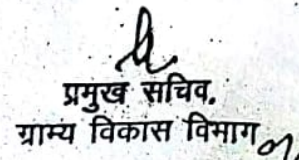 प्रमुख सचिव,
ग्राम्य विकास विभाग